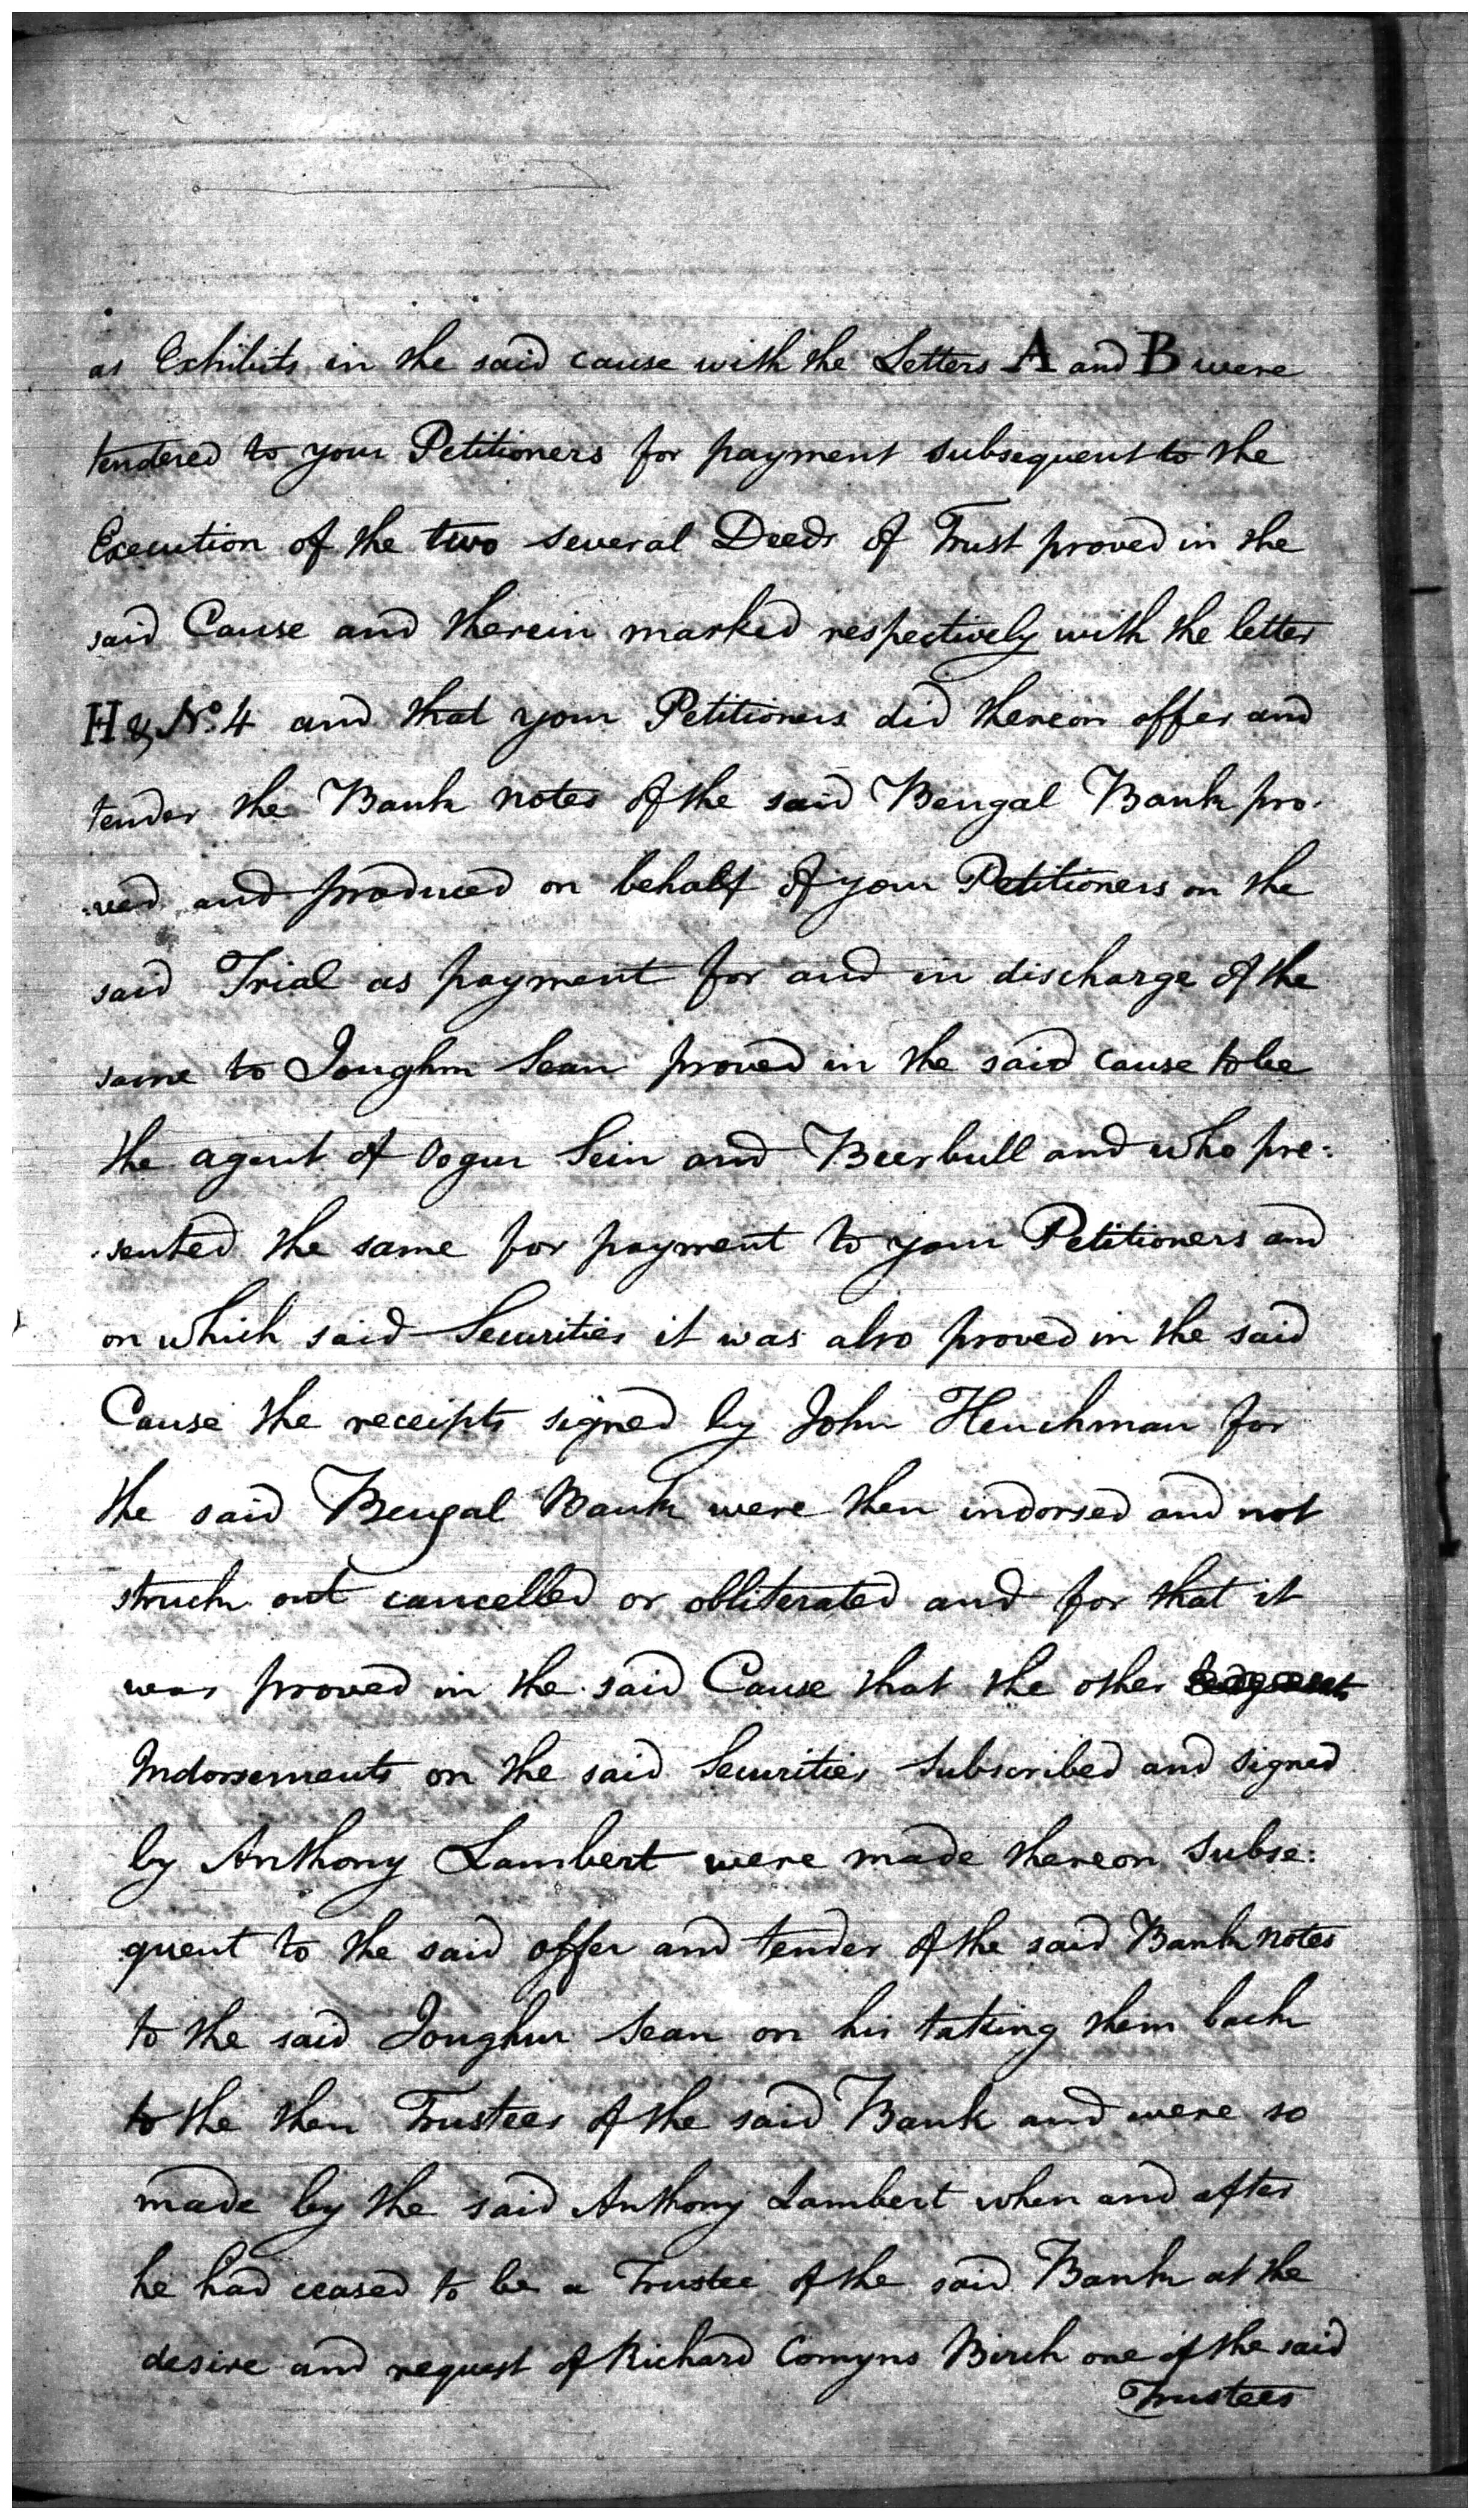 as Exhibits in the said cause with the Letters A and B were
tendered to your Petitioners for payment subsequent to the
Execution of the two several Deeds of Trust proved in the
said Cause and therein marked respectively with the letter
H & No. 4 and that your Petitioners did thereon offer and
tender the Bank notes of the said Bengal Bank pro-
-ved and produced on behalf of your Petitioners on the
said Trial as payment for and in discharge of the
same to Joughm Sean proved in the said cause to be
the agent of Sein and Beerbull and who pre:
-sented the same for payment to your Petitioners and
on which said Securities it was also proved in the said
Cause the receipts signed by John Henchman for
the said Bengal Bank were then indorsed and not
struck out cancelled or obliterated and for that it
was proved in the said Cause that the other
Indorsements on the said Securities subscribed and signed
by Anthony Lambert were made thereon subse:
quent to the said offer and tender of the said Bank notes
to the said Joughm Sean on his taking them back
to the then Trustees of the said Bank and were so
made by the said Anthony Lambert when and after
he had ceased to be a Trustee of the said Bank at the
desire and request of Richard Comyns Birch one of the said
Trustees